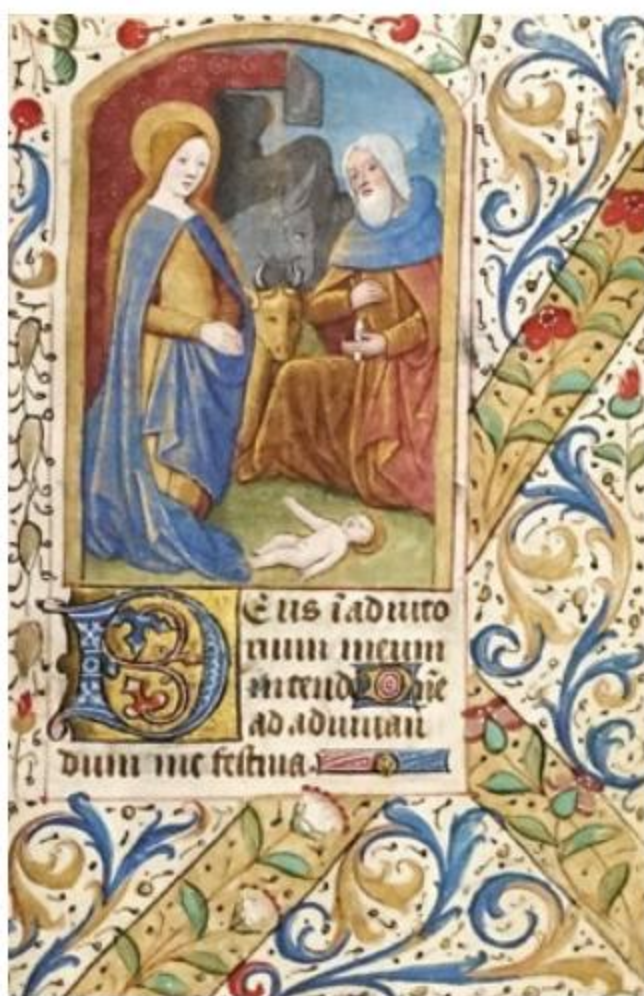 Deus ī adiuto
rium meum
intende Dn̄e
ad adiuuan
dum me festina.